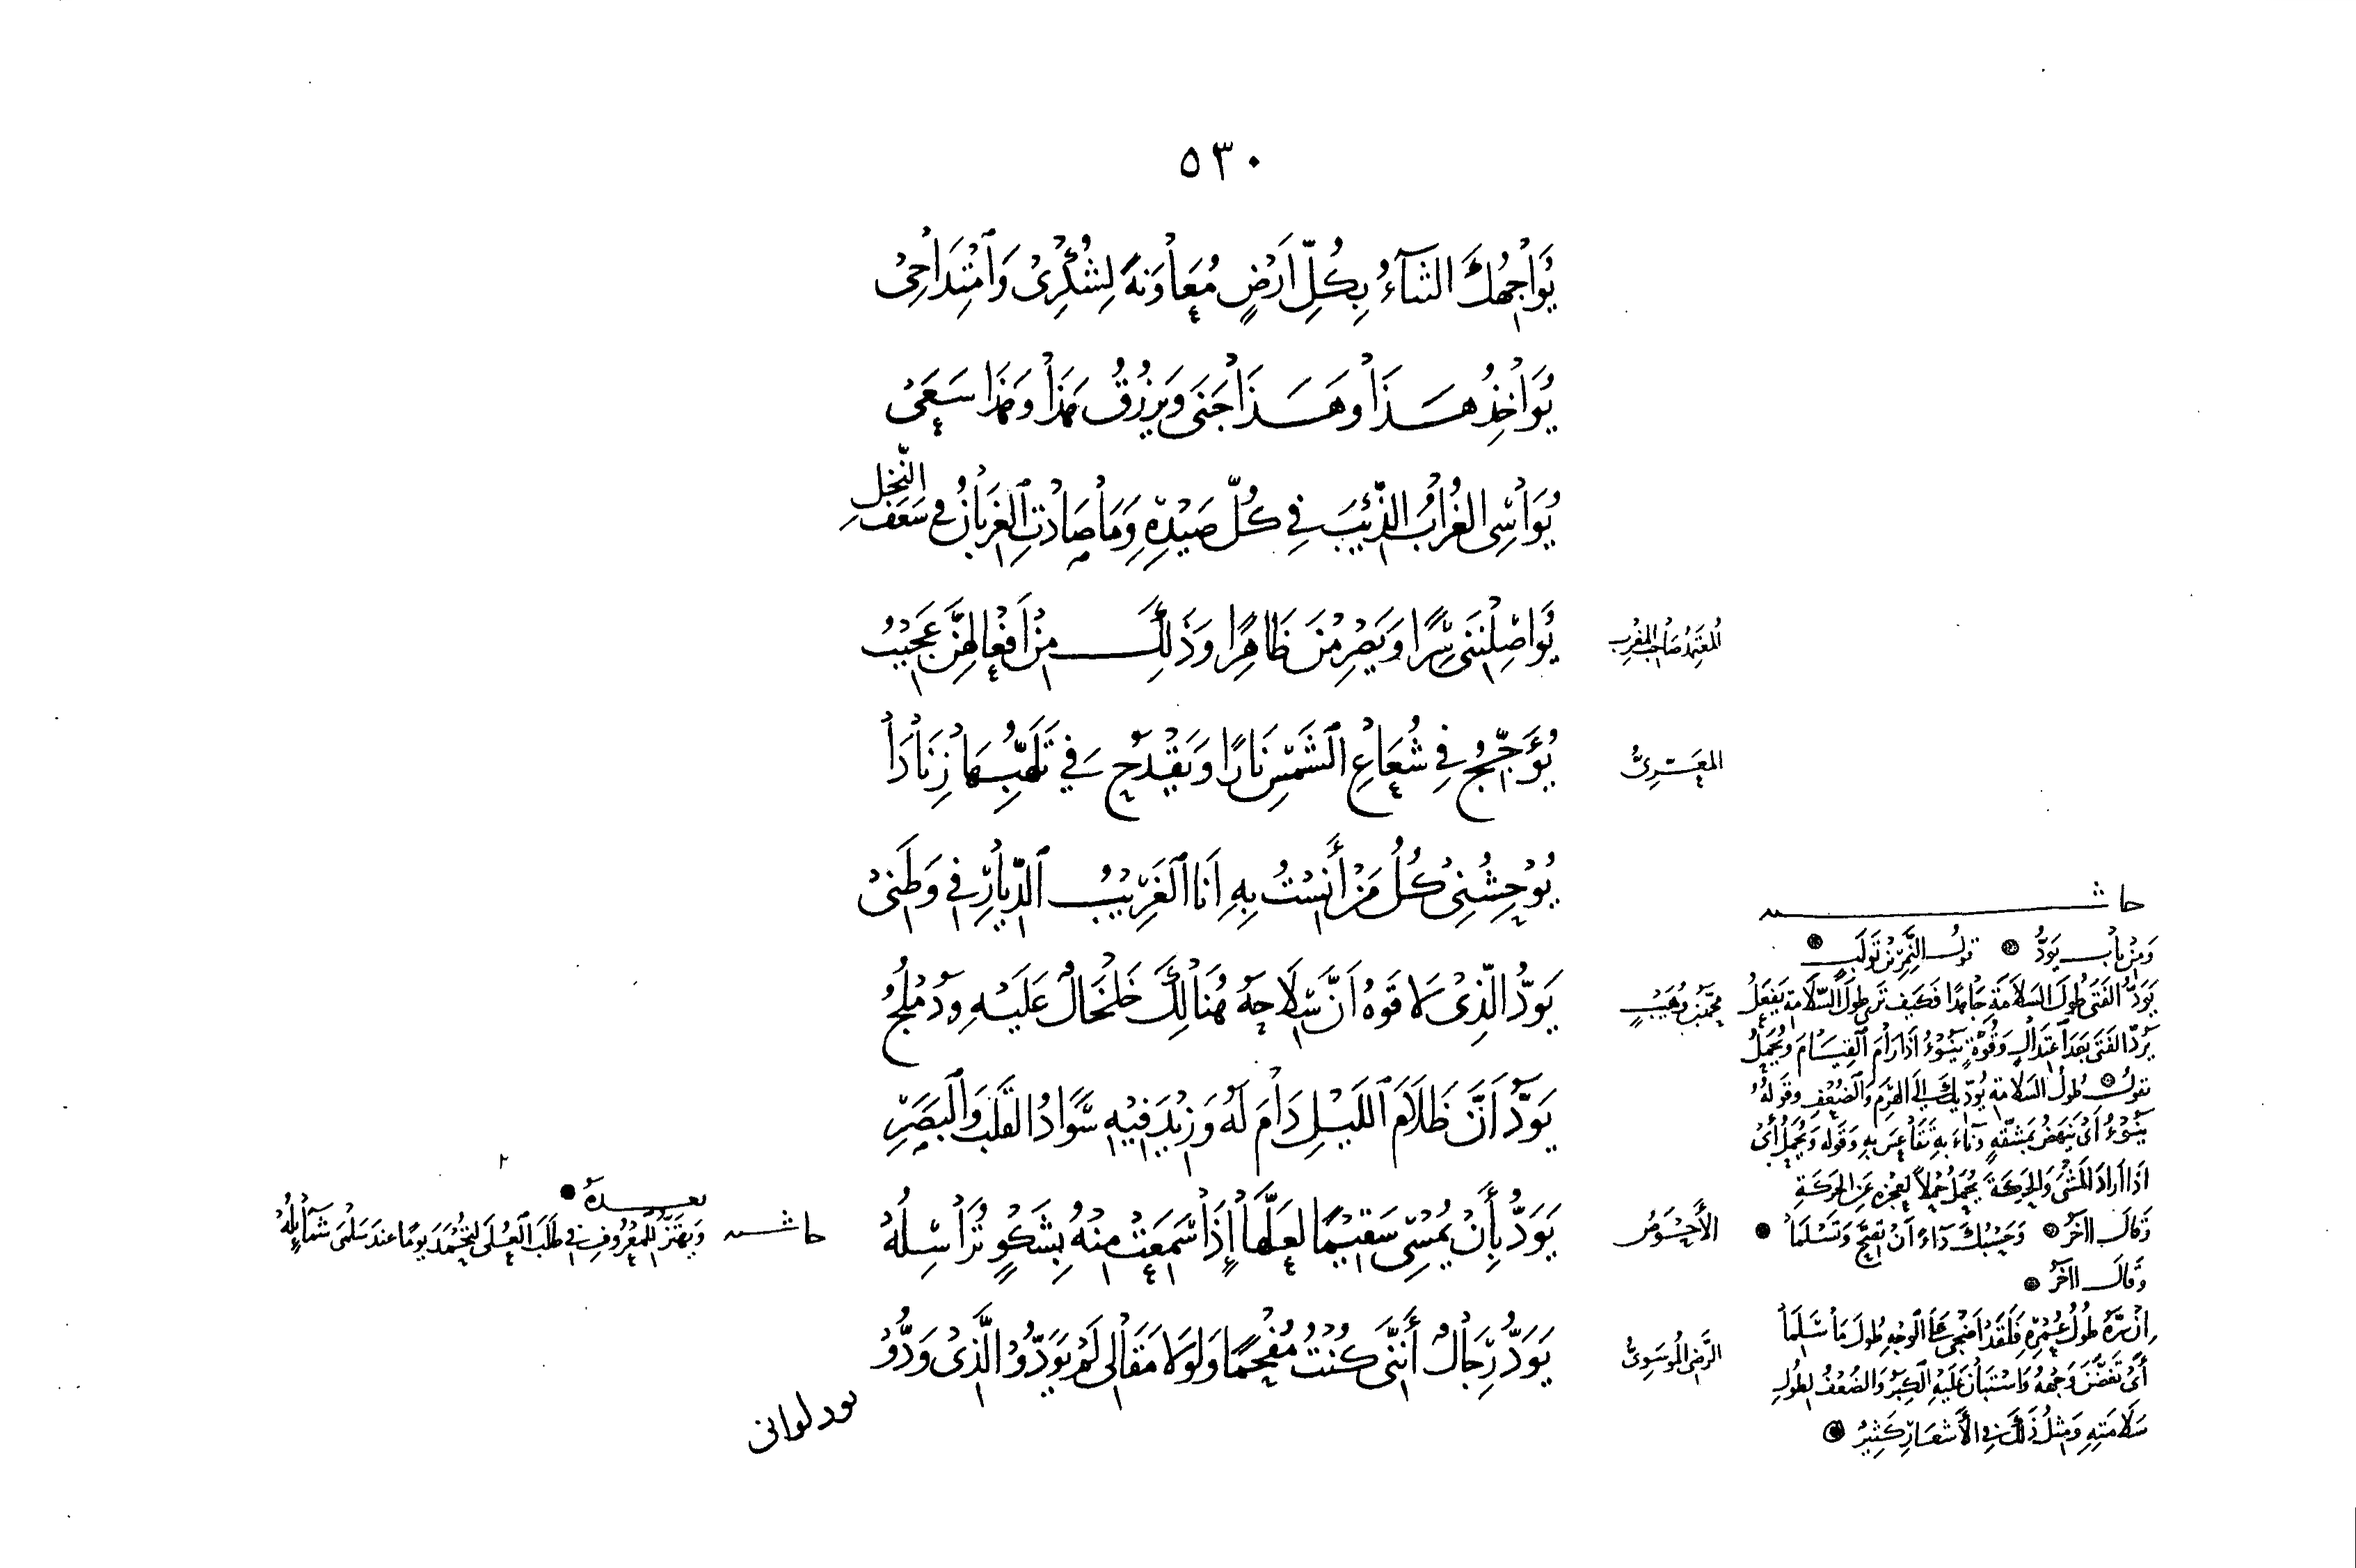 ٥٣٠
يُوَاجِهُكَ الثَّنَاءُ بِكُلِّ أَرْضٍ مُعَاوَنَةً لِشُكْرِي وَامْتِدَاحِي
يُوَاخِذُ هَذَا وَهَذَا جَنَى وَيَرْزُقُ هَذَا وَهَذَا سَعَى
يُوَاسِي الْغُرَابُ الذِّئْبَ فِي كُلِّ صَيْدِهِ وَمَا صَادَتِ الْغِرْبَانُ فِي سَعَفِ النَّخْلِ
المعتمد صاحب المغرب
يُوَاصِلْنَنِي سِرًّا وَيَصْرِمْنَ ظَاهِرًا وَذَلِكَ مِنْ أَفْعَالِهِنَّ عَجِيبُ
المعَرِّيُّ
يُؤَجِّجُ فِي شُعَاعِ الشَّمْسِ نَارًا وَيَقْدَحُ فِي تَلَهُّبِهَا زِنَادَا
يُوحِشُنِي كُلُّ مَنْ أَنِسْتُ بِهِ أَنَا الْغَرِيبُ الدِّيَارِ فِي وَطَنِي
محمد بن وُهَيْبٍ
يَوَدُّ الَّذِي لَاقَوْهُ أَنَّ سِلَاحَهُ هُنَالِكَ خَلْخَالٌ عَلَيْهِ وَدُمْلُجُ
يَوَدُّ أَنَّ ظَلَامَ اللَّيْلِ دَامَ لَهُ وَزِيدَ فِيهِ سَوَادُ الْقَلْبِ وَالْبَصَرِ
الأَحْوَصُ
يَوَدُّ بِأَنْ يُمْسِي سَقِيمًا لَعَلَّهَا إِذَا سَمِعَتْ مِنْهُ بِشَكْوٍ تُرَاسِلُهْ
الرَّضِيُّ الْمُوسَوِيُّ
يَوَدُّ رِجَالٌ أَنَّنِي كُنْتُ مُفْحَمًا وَلَوْلَا مَقَالِي لَمْ يَوَدُّوا الَّذِي وَدُّوا
يود لو اني
حاشـــيه
وَمِنْ بَاب يَوَدُّ قول النَّمِرِ بْنِ تَوْلَبٍ
يَوَدُّ الْفَتَى طُولَ السَّلَامَةِ جَاهِدًا فَكَيْفَ تَرَى طُولَ السَّلَامَةِ يَفْعَلُ
يَرُدُّ الْفَتَى بَعْدَ اعْتِدَالٍ وَقُوَّةٍ يَنُوءُ إِذَا رَامَ الْقِيَامَ وَيُحْمَلُ
يقول طُولُ السَّلَامَةِ يُوَدِّيكَ إِلَى الْهَرَمِ وَالضَّعْفِ وَقَوْلُهُ
يَنُوءُ أَيْ يَنْهَضُ بِمَشَقَّةٍ وَنَاءَ بِهِ تَقَاعَسَ بِهِ وَقَوْلُهُ وَيُحْمَلُ أَيْ
إِذَا أَرَادَ الْمَشْيَ وَالْحَرَكَةَ يُحْمَلُ حَمْلًا لِعَجْزِهِ عَنِ الْحَرَكَةِ
وَقَالَ آخَرُ وَحَسْبُكَ دَاءً أَنْ تَصِحَّ وَتَسْلَمَا
وَقَالَ آخَرُ
إِنْ سَرَّهُ طُولُ عُمْرِهِ فَلَقَدْ أَضْحَى عَلَى الْوَجْهِ طُولُ مَا سَلِمَا
أَيْ تَغَضَّنَ وَجْهُهُ وَاسْتَبَانَ عَلَيْهِ الْكِبَرُ وَالضَّعْفُ لِطُولِ
سَلَامَتِهِ وَمِثْلُ ذَلِكَ فِي الْأَشْعَارِ كَثِيرٌ
حاشـــيه
بعـــده
وَيَهْتَزُّ لِلْمَعْرُوفِ فِي طَلَبِ الْعُلَى لِتُحْمَدَ يَوْمًا عِنْدَ سَلْمَى شَمَائِلُهْ